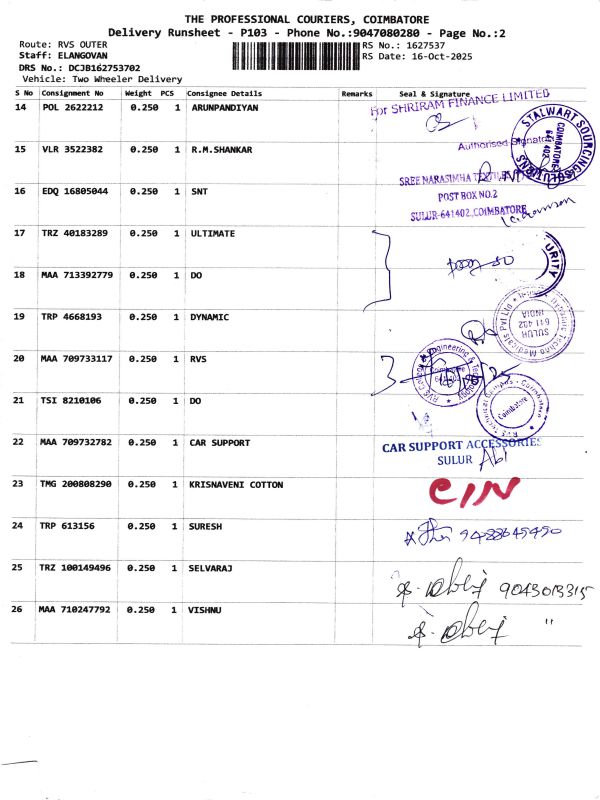 THE PROFESSIONAL COURIERS, COIMBATORE
Delivery Runsheet - P103 - Phone No.:9047080280 - Page No.:2
Route: RVS OUTER RS No.: 1627537
Staff: ELANGOVAN RS Date: 16-Oct-2025
DRS No.: DCJB162753702
Vehicle: Two Wheeler Delivery
S No Consignment No Weight PCS Consignee Details Remarks Seal & Signature
14 POL 2622212 0.250 1 ARUNPANDIYAN
For SHRIRAM FINANCE LIMITED
Authorised Signatory
STALWART SOURCING SOLUTIONS
COIMBATORE
641 402
15 VLR 3522382 0.250 1 R.M.SHANKAR
16 EDQ 16805044 0.250 1 SNT
SREE NARASIMHA
POST BOX NO.2
SULUR-641402,COIMBATORE
17 TRZ 40183289 0.250 1 ULTIMATE
URITY
18 MAA 713392779 0.250 1 DO
19 TRP 4668193 0.250 1 DYNAMIC
Dynamic Techno Medicals Pvt Ltd
SULUR
641 402
INDIA
20 MAA 709733117 0.250 1 RVS
Coimbatore
641 402
21 TSI 8210106 0.250 1 DO
Coimbatore
22 MAA 709732782 0.250 1 CAR SUPPORT
CAR SUPPORT ACCESSORIES
SULUR
23 TMG 200808290 0.250 1 KRISNAVENI COTTON
24 TRP 613156 0.250 1 SURESH
25 TRZ 100149496 0.250 1 SELVARAJ
9043013315
26 MAA 710247792 0.250 1 VISHNU
"